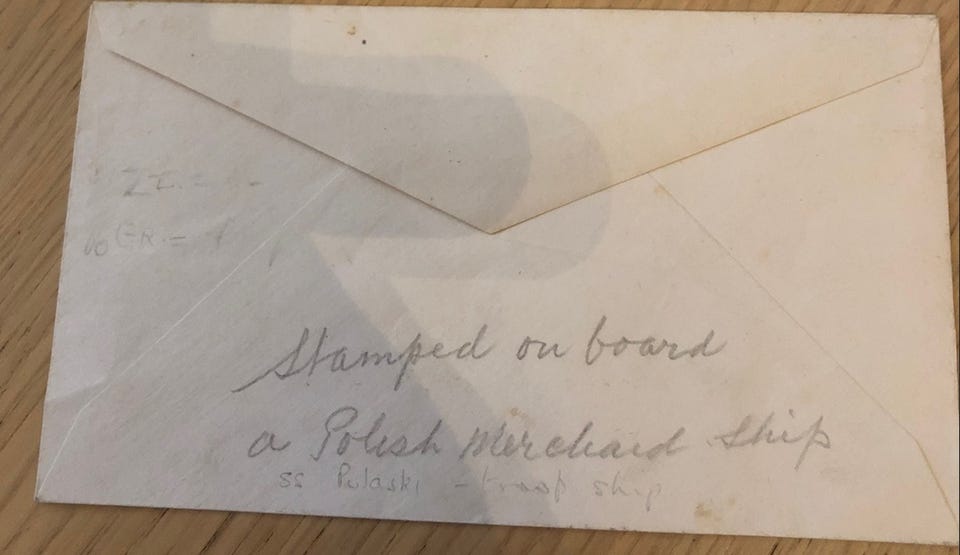 ZŁ. = -
GR. =
Stamped on board
a Polish Merchaid Ship
ss Pulaski - troop ship